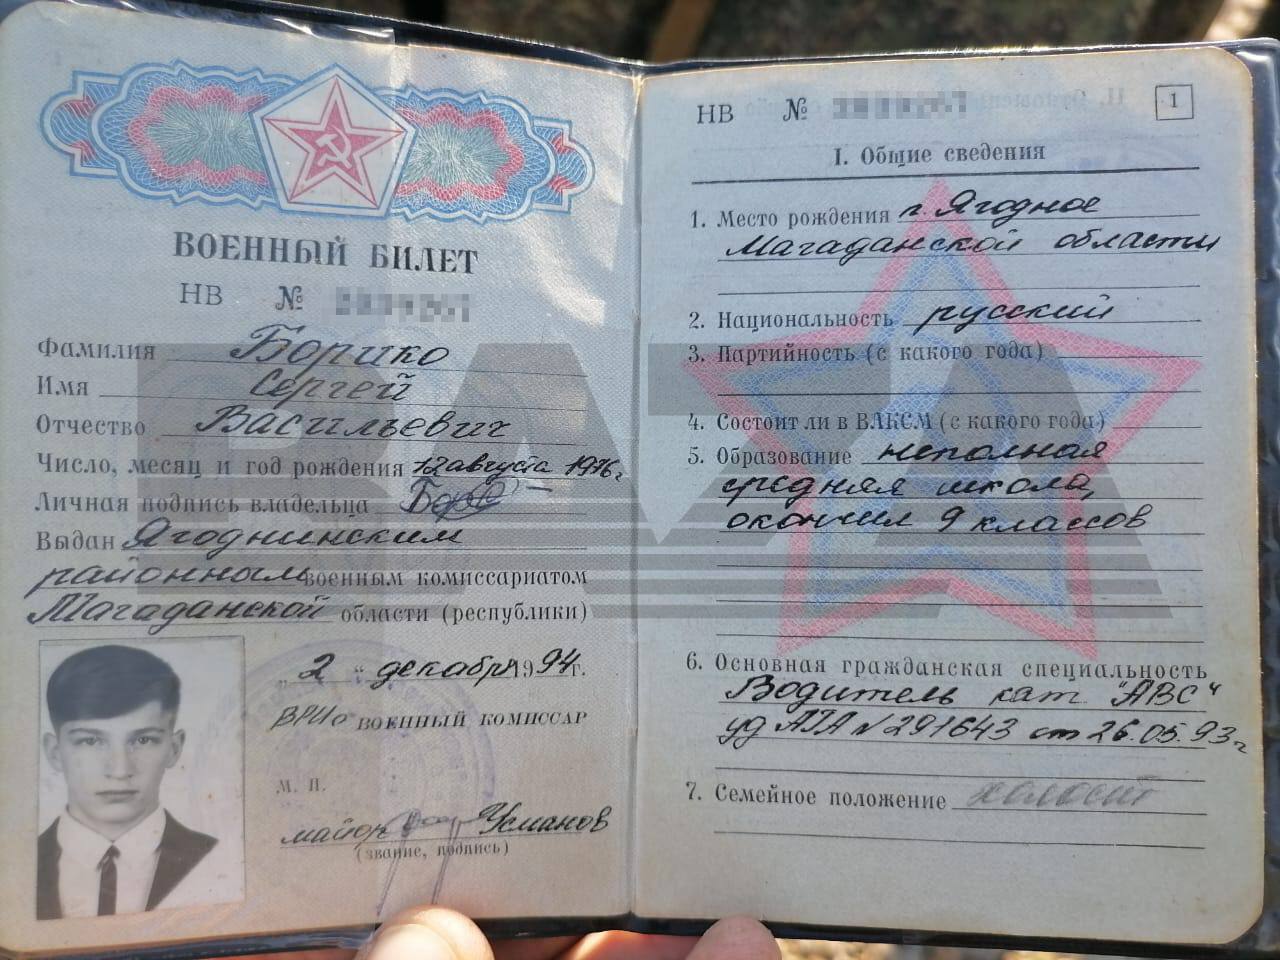 ВОЕННЫЙ БИЛЕТ
НВ №
Фамилия Борико
Имя Сергей
Отчество Васильевич
Число, месяц и год рождения 12 августа 1976 г.
Личная подпись владельца
Выдан Ягоднинским
районным военным комиссариатом
Магаданской области (республики)
„2“ декабря 1994 г.
ВРИо ВОЕННЫЙ КОМИССАР
М. П.
майор Усманов
(звание, подпись)
НВ № 1
I. Общие сведения
1. Место рождения п. Ягодное
Магаданской области
2. Национальность русский
3. Партийность (с какого года)
4. Состоит ли в ВЛКСМ (с какого года)
5. Образование неполная
средняя школа,
окончил 9 классов
6. Основная гражданская специальность
Водитель кат "АВС"
уд АПА N 291643 от 26.05.93г
7. Семейное положение холост
BAZA